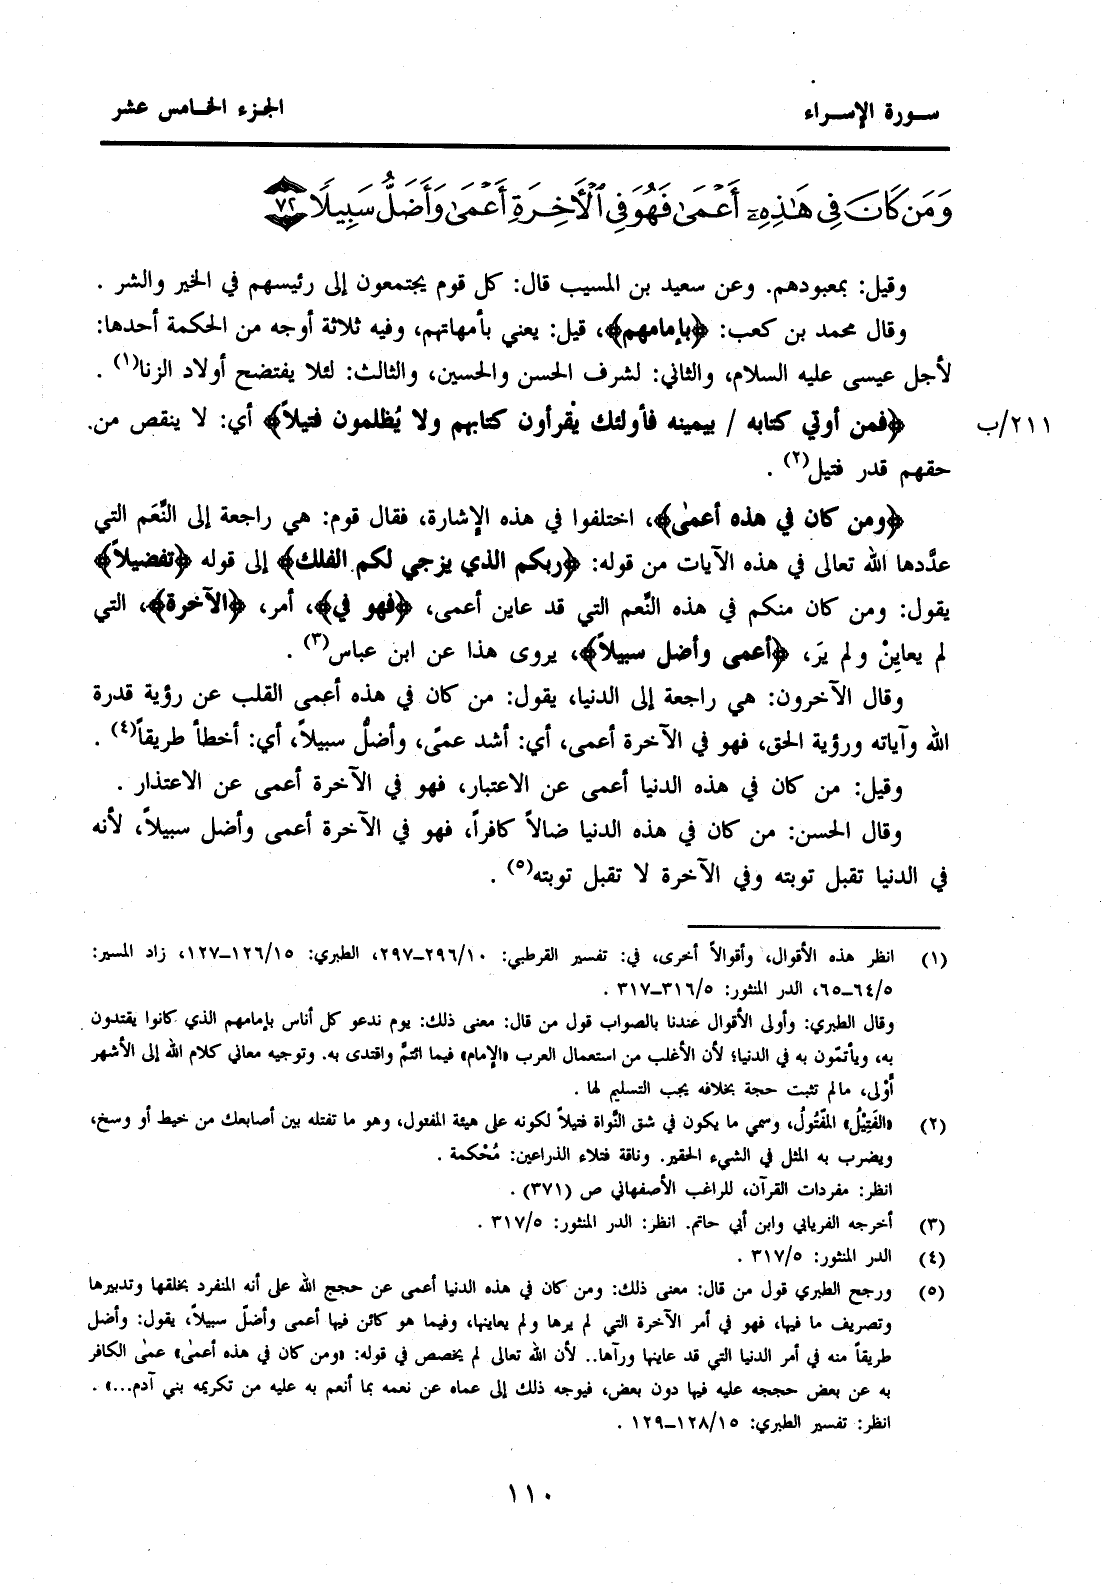 سورة الإسراء
الجزء الخامس عشر
وَمَن كَانَ فِي هَٰذِهِۦٓ أَعۡمَىٰ فَهُوَ فِي ٱلۡأٓخِرَةِ أَعۡمَىٰ وَأَضَلُّ سَبِيلًا ٧٢
وقيل: بمعبودهم. وعن سعيد بن المسيب قال: كل قوم يجتمعون إلى رئيسهم في الخير والشر .
وقال محمد بن كعب: ﴿بإمامهم﴾، قيل: يعني بأمهاتهم، وفيه ثلاثة أوجه من الحكمة أحدها:
لأجل عيسى عليه السلام، والثاني: لشرف الحسن والحسين، والثالث: لئلا يفتضح أولاد الزنا(١) .
﴿فمن أوتي كتابه / بيمينه فأولئك يقْرأون كتابهم ولا يُظلمون فتيلاً﴾ أي: لا ينقص من
٢١١/ب
حقهم قدر فتيل(٢) .
﴿ومن كان في هذه أعمىٰ﴾، اختلفوا في هذه الإشارة، فقال قوم: هي راجعة إلى النَّعَم التي
عدَّدها الله تعالى في هذه الآيات من قوله: ﴿ربكم الذي يزجي لكم الفلك﴾ إلى قوله ﴿تفضيلاً﴾
يقول: ومن كان منكم في هذه النِّعم التي قد عاين أعمى، ﴿فهو في﴾، أمر، ﴿الآخرة﴾، التي
لم يعاينْ ولم يرَ، ﴿أعمى وأضل سبيلاً﴾، يروى هذا عن ابن عباس(٣) .
وقال الآخرون: هي راجعة إلى الدنيا، يقول: من كان في هذه أعمى القلب عن رؤية قدرة
الله وآياته ورؤية الحق، فهو في الآخرة أعمى، أي: أشد عمىً، وأضلُّ سبيلاً، أي: أخطأ طريقاً(٤) .
وقيل: من كان في هذه الدنيا أعمى عن الاعتبار، فهو في الآخرة أعمى عن الاعتذار .
وقال الحسن: من كان في هذه الدنيا ضالاً كافراً، فهو في الآخرة أعمى وأضل سبيلاً، لأنه
في الدنيا تقبل توبته وفي الآخرة لا تقبل توبته(٥) .
(١) انظر هذه الأقوال، وأقوالاً أخرى، في: تفسير القرطبي: ١٠/٢٩٦ـ٢٩٧، الطبري: ١٥/١٢٦ـ١٢٧، زاد المسير:
٥/٦٤ـ٦٥، الدر المنثور: ٥/٣١٦ـ٣١٧ .
وقال الطبري: وأولى الأقوال عندنا بالصواب قول من قال: معنى ذلك: يوم ندعو كل أناس بإمامهم الذي كانوا يقتدون
به، ويأتمّون به في الدنيا؛ لأن الأغلب من استعمال العرب «الإمام» فيما ائتمَّ واقتدى به. وتوجيه معاني كلام الله إلى الأشهر
أَوْلى، مالم تثبت حجة بخلافه يجب التسليم لها .
(٢) «الفَتِيْلُ» المَفْتُولُ، وسمي ما يكون في شق النَّواة فتيلاً لكونه على هيئة المفتول، وهو ما تفتله بين أصابعك من خيط أو وسخ،
ويضرب به المثل في الشيء الحقير. وناقة فتلاء الذراعين: مُحْكمة .
انظر: مفردات القرآن، للراغب الأصفهاني ص (٣٧١) .
(٣) أخرجه الفريابي وابن أبي حاتم. انظر: الدر المنثور: ٥/٣١٧ .
(٤) الدر المنثور: ٥/٣١٧ .
(٥) ورجح الطبري قول من قال: معنى ذلك: ومن كان في هذه الدنيا أعمى عن حجج الله على أنه المنفرد بخلقها وتدبيرها
وتصريف ما فيها، فهو في أمر الآخرة التي لم يرها ولم يعاينها، وفيما هو كائن فيها أعمى وأضلّ سبيلاً، يقول: وأضل
طريقاً منه في أمر الدنيا التي قد عاينها ورآها.. لأن الله تعالى لم يخصص في قوله: «ومن كان في هذه أعمىٰ» عمىٰ الكافر
به عن بعض حججه عليه فيها دون بعض، فيوجه ذلك إلى عماه عن نعمه بما أنعم به عليه من تكريمه بني آدم...» .
انظر: تفسير الطبري: ١٥/١٢٨ـ١٢٩ .
١١٠